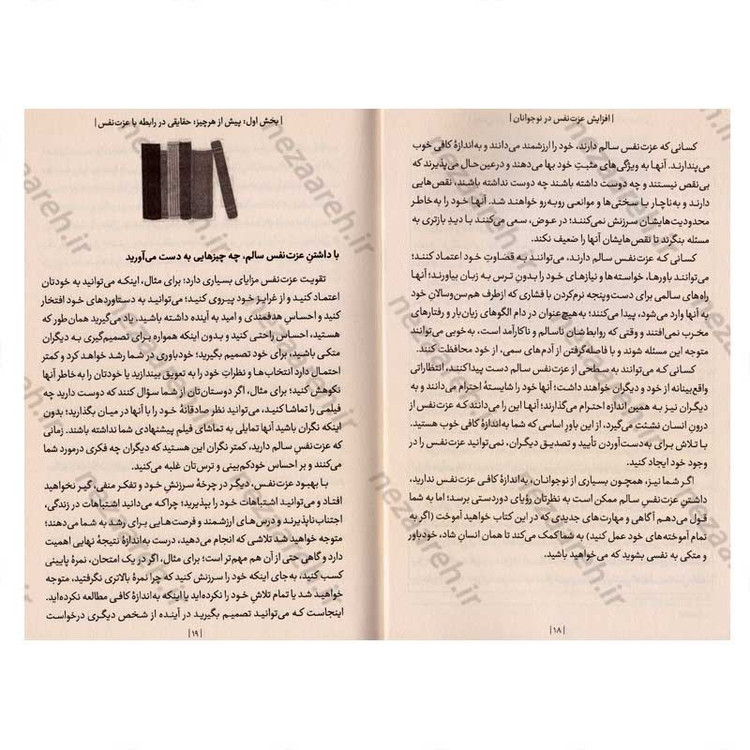 | افزایش عزت‌نفس در نوجوانان |
کسانی که عزت‌نفس سالم دارند، خود را ارزشمند می‌دانند و به‌اندازهٔ کافی خوب
می‌پندارند. آنها به ویژگی‌های مثبتِ خود بها می‌دهند و درعین‌حال می‌پذیرند که
بی‌نقص نیستند و چه دوست داشته باشند چه دوست نداشته باشند، نقص‌هایی
دارند و به‌ناچار با سختی‌ها و موانعی روبه‌رو خواهند شد. آنها خود را به‌خاطر
محدودیت‌هایشان سرزنش نمی‌کنند؛ در عوض، سعی می‌کنند با دیدِ بازتری به
مسئله بنگرند تا نقص‌هایشان آنها را ضعیف نکند.
کسانی که عزت‌نفس سالم دارند، می‌توانند به قضاوتِ خود اعتماد کنند؛
می‌توانند باورها، خواسته‌ها و نیازهای خود را بدونِ ترس به زبان بیاورند؛ آنها
راه‌های سالمی برای دست‌وپنجه نرم‌کردن با فشاری که ازطرف هم‌سن‌وسالانِ خود
به آنها وارد می‌شود، پیدا می‌کنند؛ به‌هیچ‌عنوان در دام الگوهای زیان‌بار و رفتارهای
مخرب نمی‌افتند و وقتی که روابط‌شان ناسالم و ناکارآمد است، به‌خوبی می‌توانند
متوجه این مسئله شوند و با فاصله‌گرفتن از آدم‌های سمی، از خود محافظت کنند.
کسانی که می‌توانند به سطحی از عزت‌نفس سالم دست پیدا کنند، انتظاراتی
واقع‌بینانه از خود و دیگران خواهند داشت؛ آنها خود را شایستهٔ احترام می‌دانند و به
دیگران نیز به همین اندازه احترام می‌گذارند؛ آنها این را می‌دانند که عزت‌نفس از
درونِ انسان نشئت می‌گیرد، از این باورِ اساسی که شما به‌اندازهٔ کافی خوب هستید.
با تلاش برای به‌دست‌آوردن تأیید و تصدیق دیگران، نمی‌توانید عزت‌نفس را در
وجود خود ایجاد کنید.
اگر شما نیز، همچون بسیاری از نوجوانان، به‌اندازهٔ کافی عزت‌نفس ندارید،
داشتنِ عزت‌نفس سالم ممکن است به نظرتان رؤیای دوردستی برسد؛ اما به شما
قول می‌دهم آگاهی و مهارت‌های جدیدی که در این کتاب خواهید آموخت (اگر به
تمام آموخته‌های خود عمل کنید) به شما کمک می‌کند تا همان انسانِ شاد، خودباور
و متکی به نفسی بشوید که می‌خواهید باشید.
| ۱۸ |
| بخش اول: پیش از هرچیز؛ حقایقی در رابطه با عزت‌نفس |
با داشتنِ عزت‌نفس سالم، چه چیزهایی به دست می‌آورید
تقویت عزت‌نفس مزایای بسیاری دارد؛ برای مثال، اینکه می‌توانید به خودتان
اعتماد کنید و از غرایز خود پیروی کنید؛ می‌توانید به دستاوردهای خود افتخار
کنید و احساسِ هدفمندی و امید به آینده داشته باشید. یاد می‌گیرید همان‌طور که
هستید، احساس راحتی کنید و بدون اینکه همواره برای تصمیم‌گیری به دیگران
متکی باشید، برای خود تصمیم بگیرید؛ خودباوری در شما رشد خواهد کرد و کمتر
احتمال دارد انتخاب‌ها و نظراتِ خود را به تعویق بیندازید یا خودتان را به خاطر آنها
نکوهش کنید؛ برای مثال، اگر دوستان‌تان از شما سؤال کنند که دوست دارید چه
فیلمی را تماشا کنید، می‌توانید نظر صادقانهٔ خود را با آنها در میان بگذارید؛ بدون
اینکه نگران باشید آنها تمایلی به تماشای فیلم پیشنهادی شما نداشته باشند. زمانی
که عزت‌نفسِ سالم دارید، کمتر نگران این هستید که دیگران چه فکری درمورد شما
می‌کنند و بر احساس خودکم‌بینی و ترس‌تان غلبه می‌کنید.
با بهبودِ عزت‌نفس، دیگر در چرخهٔ سرزنشِ خود و تفکر منفی، گیر نخواهید
افتاد و می‌توانید اشتباهات خود را بپذیرید؛ چراکه می‌دانید اشتباهات در زندگی،
اجتناب‌ناپذیرند و درس‌های ارزشمند و فرصت‌هایی برای رشد به شما می‌دهند؛
متوجه خواهید شد تلاشی که انجام می‌دهید، درست به‌اندازهٔ نتیجهٔ نهایی اهمیت
دارد و گاهی حتی از آن هم مهم‌تر است؛ برای مثال، اگر در یک امتحان، نمرهٔ پایینی
کسب کنید، به‌جای اینکه خود را سرزنش کنید که چرا نمرهٔ بالاتری نگرفتید، متوجه
خواهید شد یا تمام تلاشِ خود را نکرده‌اید یا اینکه به‌اندازهٔ کافی مطالعه نکرده‌اید.
اینجاست که می‌توانید تصمیم بگیرید در آینده از شخص دیگری درخواست
| ۱۹ |
nezaareh.ir